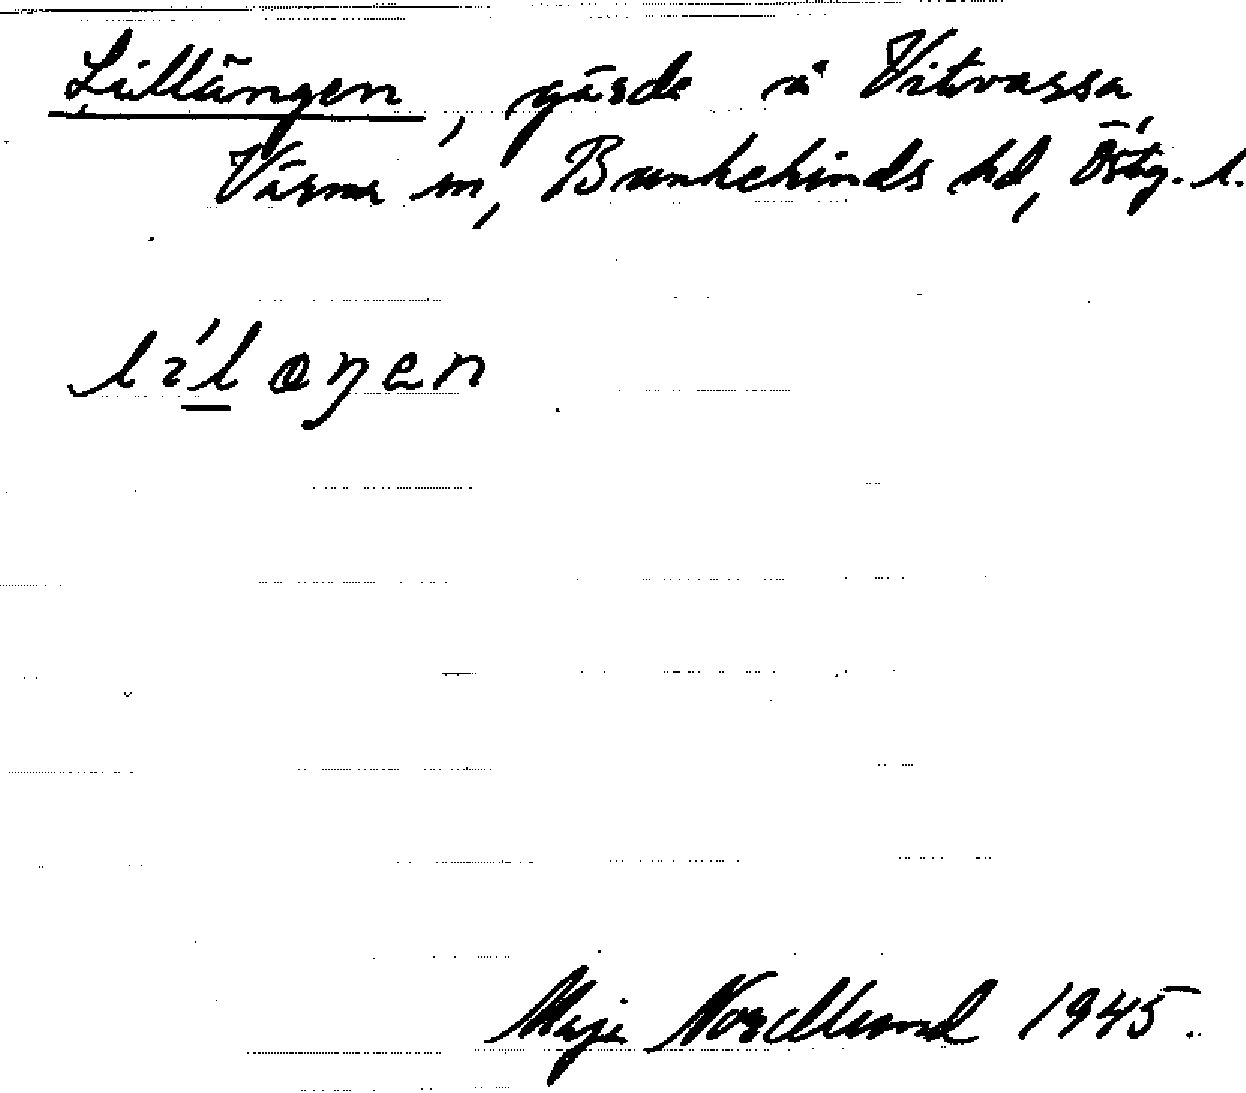 Lillängen, gärde å Vitvassa
Värna sn, Bankekinds hd, Östg. l.
lil aŋen
Maja Nordlund 1945.